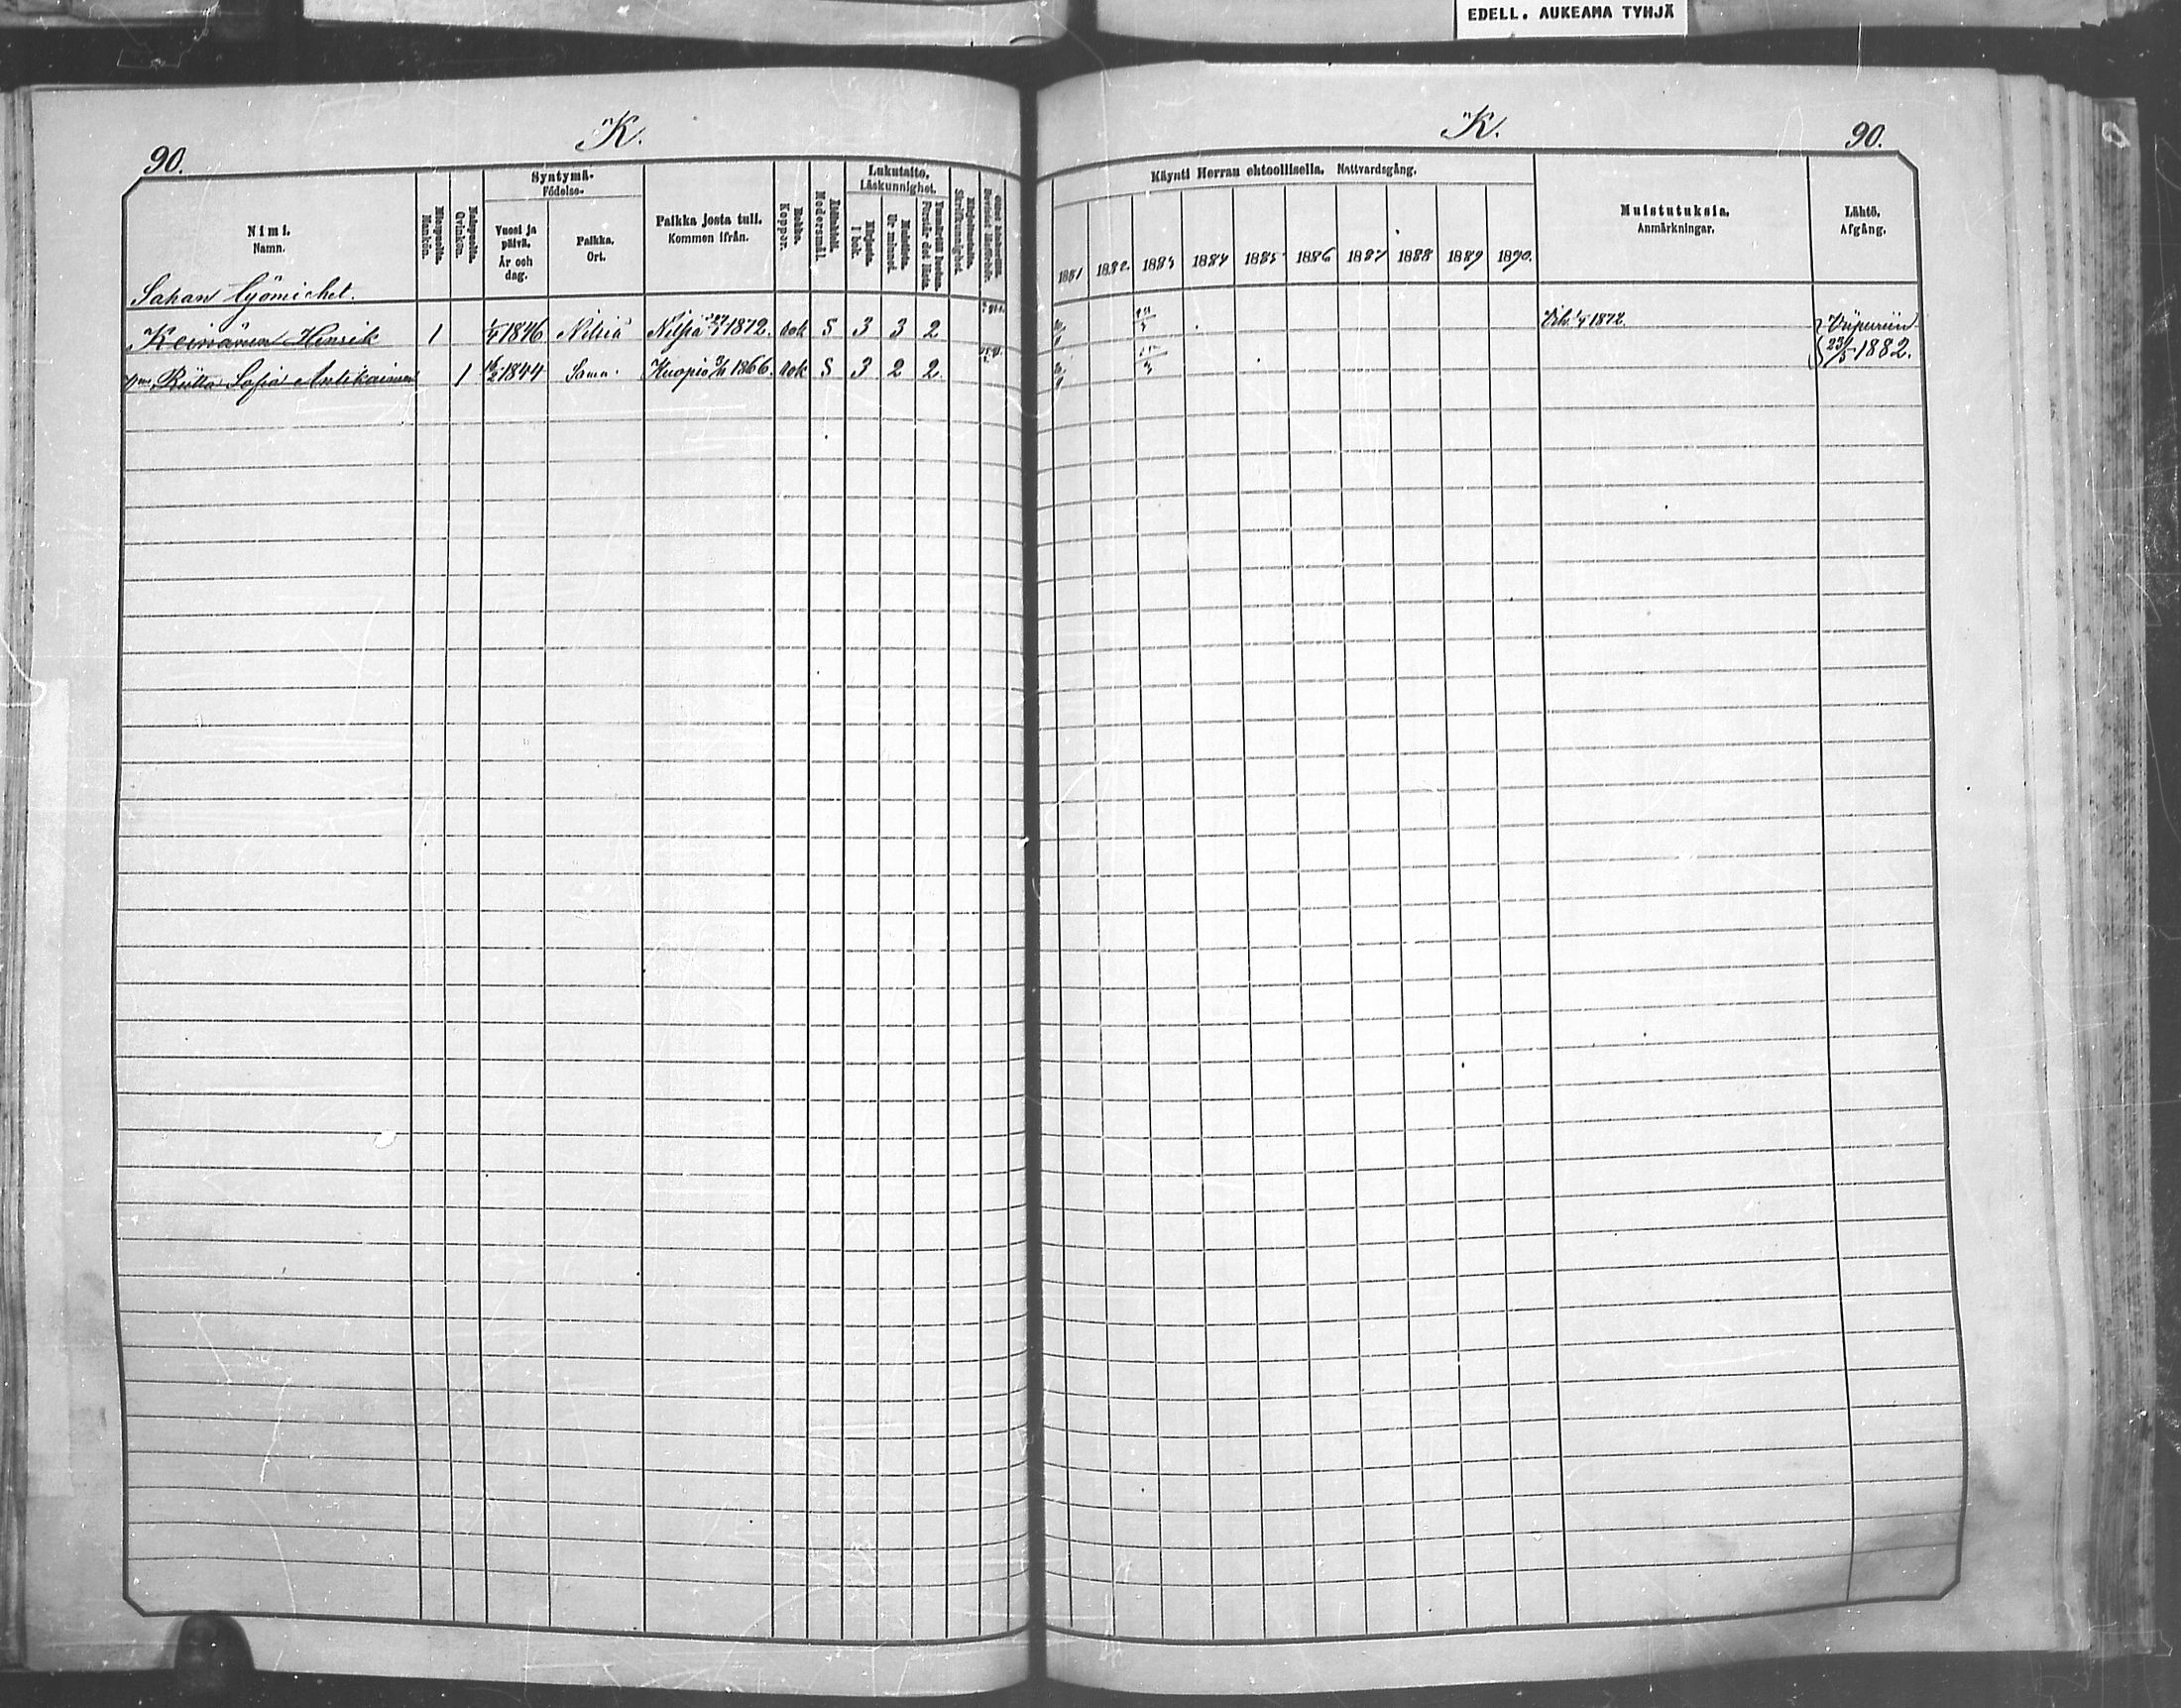 EDELL. AUKEAMA TYHJÄ
90. K.
Nimi.
Namn.
Miespuolia.
Mankön.
Naispuolia.
Qvinkön.
Syntymä-
Födelse-
Vuosi ja
päivä.
År och
dag.
Paikka.
Ort.
Paikka josta tuli.
Kommen ifrån.
Rokko.
Koppor.
Äidinkieli.
Modersmål.
Lukutaito.
Läskunnighet.
Kirjasta.
I bok.
Muistista.
Ur minnet.
Kirjoitustaito.
Skrifkunnighet.
Sahan työmiehet.
Keinänen Henrik 1 1846 Nilsiä Nilsiä 1872. rok S 3 3 2
Riitta Sofia Antikainen 1 1844 Sama Kuopio 1866. rok S 3 2 2
K. 90.
Käynti Herran ehtoollisella. Nattvardsgång.
1881 1882 1883 1884 1885 1886 1887 1888 1889 1890.
Muistutuksia.
Anmärkningar.
Lähtö.
Afgång.
Vih. 1872. Viipuriin
23/5 1882.